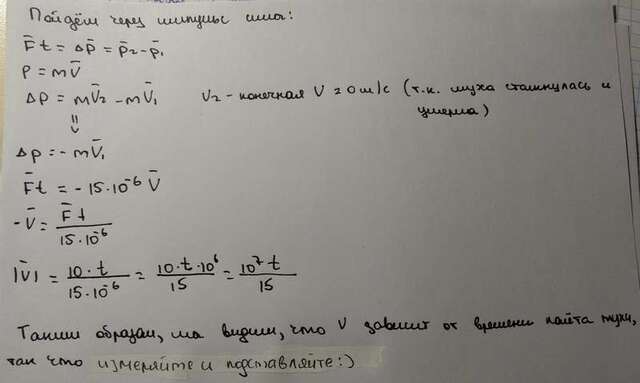 Пойдём через импульс силы:
F̄t = Δp̄ = p̄₂ - p̄₁
p = mV̄
Δp = mV̄₂ - mV̄₁ V₂ - конечная V = 0 м/с (т.к. муха столкнулась и
умерла)
⇓
Δp = - mV̄₁
F̄t = - 15·10⁻⁶ V̄
-V̄ = F̄t / 15·10⁻⁶
|V̄| = 10·t / 15·10⁻⁶ = 10·t·10⁶ / 15 = 10⁷t / 15
Таким образом, мы видим, что V зависит от времени полёта мухи,
так что измеряйте и подставляйте:)